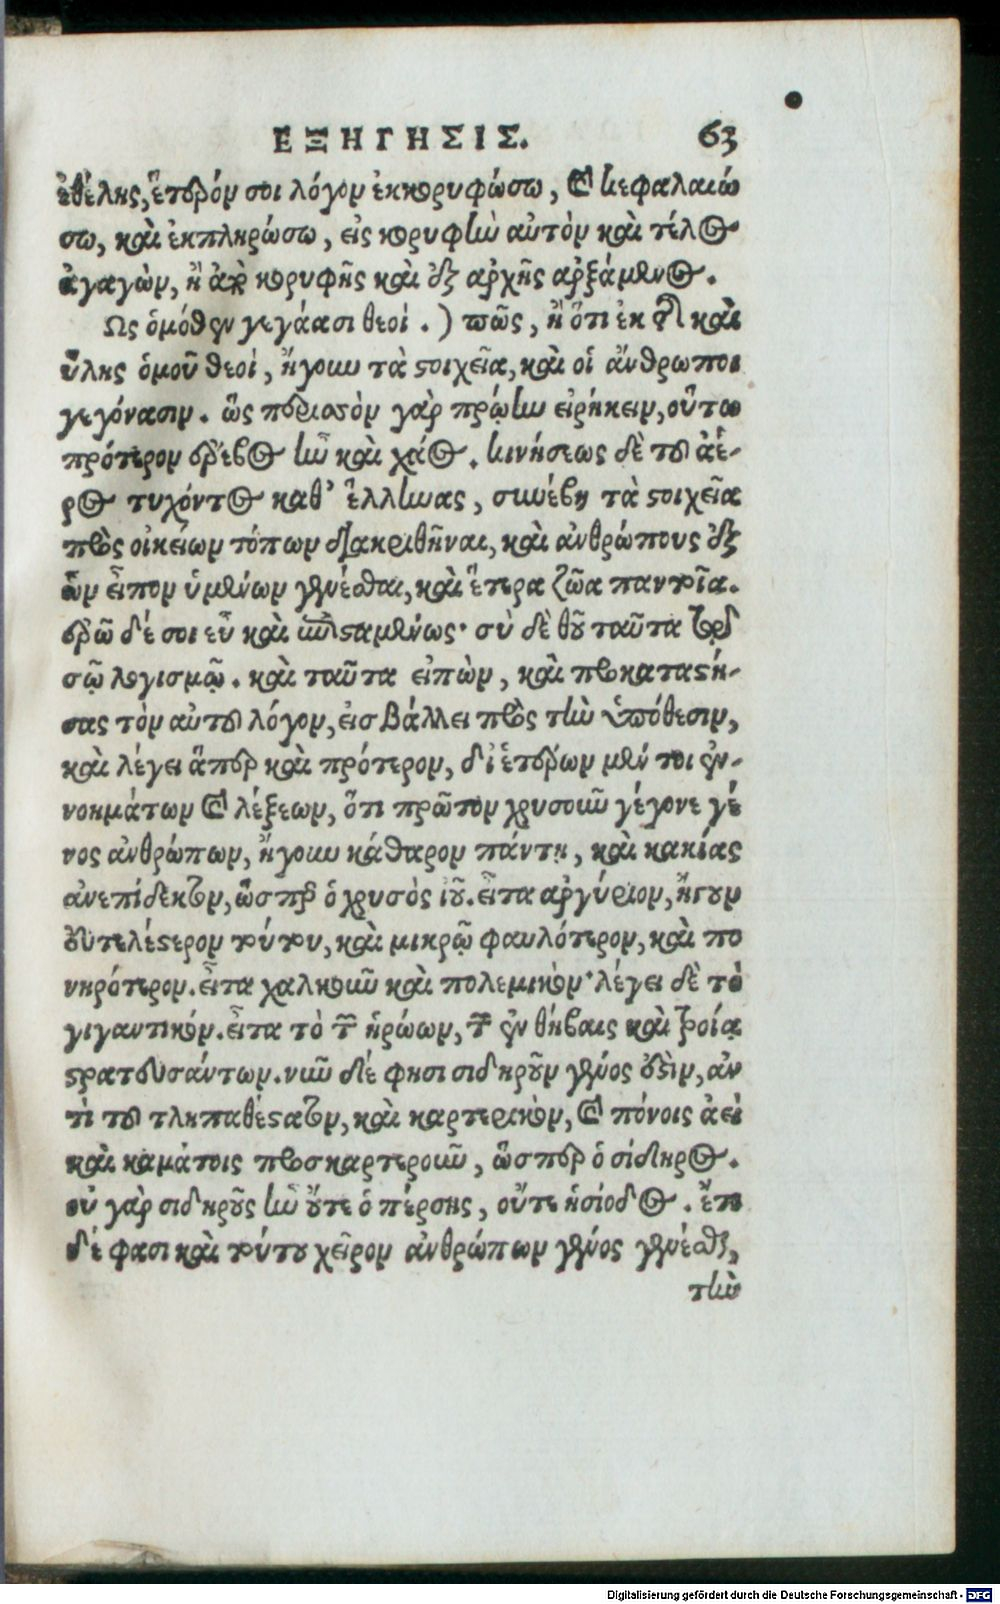 ΕΞΗΓΗΣΙΣ. 63
ἐθέλης, ἕτερόν σοι λόγον ἐκκορυφώσω, καὶ κεφαλαιώ
σω, καὶ ἐκπληρώσω, εἰς κορυφὴν αὐτὸν καὶ τέλος
ἀγαγὼν, ἢ ἀπὸ κορυφῆς καὶ ἐξ ἀρχῆς ἀρξάμενος.
Ως ὁμόθεν γεγάασι θεοὶ.) πῶς, ἢ ὅτι ἐκ καὶ
ὕλης ὁμοῦ θεοὶ, ἤγουν τὰ στοιχεῖα, καὶ οἱ ἄνθρωποι
γεγόνασιν. ὡς περισσὸν γὰρ πρώην εἰρήκειν, οὕτω
πρότερον ἔρεβος ἦν καὶ χάος. κινήσεως δὲ τοῦ ἀέ-
ρος τυχόντος καθ' ἕλληνας, συνέβη τὰ στοιχεῖα
πρὸς οἰκείων τόπων διακριθῆναι, καὶ ἀνθρώπους ἐξ
ὧν εἶπον ὑμένων γενέσθαι, καὶ ἕτερα ζῶα παντοῖα.
ἐρῶ δέ σοι εὖ καὶ ἐπισταμένως· σὺ δὲ θοῦ ταῦτα τῷ
σῷ λογισμῷ. καὶ ταῦτα εἰπὼν, καὶ προκαταστή-
σας τὸν αὐτοῦ λόγον, εἰσβάλλει πρὸς τὴν ὑπόθεσιν,
καὶ λέγει ἅπερ καὶ πρότερον, δι' ἑτέρων μέν τοι ἐν-
νοημάτων καὶ λέξεων, ὅτι πρῶτον χρυσοῦν γέγονε γέ
νος ἀνθρώπων, ἤγουν κάθαρον πάντη, καὶ κακίας
ἀνεπίδεκτον, ὥσπερ ὁ χρυσὸς ἰοῦ. εἶτα ἀργύριον, ἤγουν
εὐτελέστερον τούτου, καὶ μικρῷ φαυλότερον, καὶ πο
νηρότερον. εἶτα χαλκοῦν καὶ πολεμικόν· λέγει δὲ τὸ
γιγαντικόν. εἶτα τὸ τῶν ἡρώων, τῶν ἐν θήβαις καὶ τροία
στρατευσάντων. νῦν δέ φησι σιδηροῦν γένος ἐστὶν, ἀν
τὶ τοῦ τληπαθέστατον, καὶ καρτερικὸν, καὶ πόνοις ἀεὶ
καὶ καμάτοις προσκαρτεροῦν, ὥσπερ ὁ σίδηρος.
οὐ γὰρ σιδηροῦς ἦν οὔτε ὁ πέρσης, οὔτε ἡσίοδος. ἔτι
δέ φασι καὶ τούτου χεῖρον ἀνθρώπων γένος γενέσθαι,
τὴν
Digitalisierung gefördert durch die Deutsche Forschungsgemeinschaft - DFG